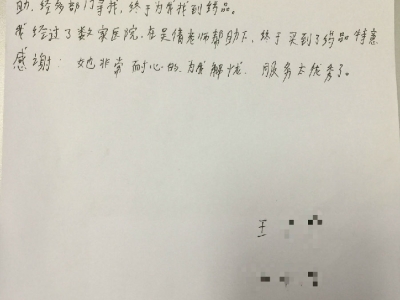 助,经多部门寻找,终于为我找到药品。
我经过了数家医院,在吴倩老师帮助下,终于买到了药品特意
感谢:她非常耐心的为我解忧,服务太优秀了。
王